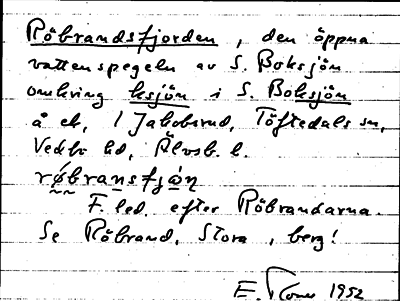 Röbrandsfjorden, den öppna
vattenspegeln av S. Boksjön
omkring ksjön i S. Boksjön
å ek, 1 Jakobsrud, Töftedals sn,
Vedbo hd, Älvsb. l.
røbransfjǫ́n
F. led. efter Röbrandarna.
Se Röbrand, Stora, berg!
E. 1952